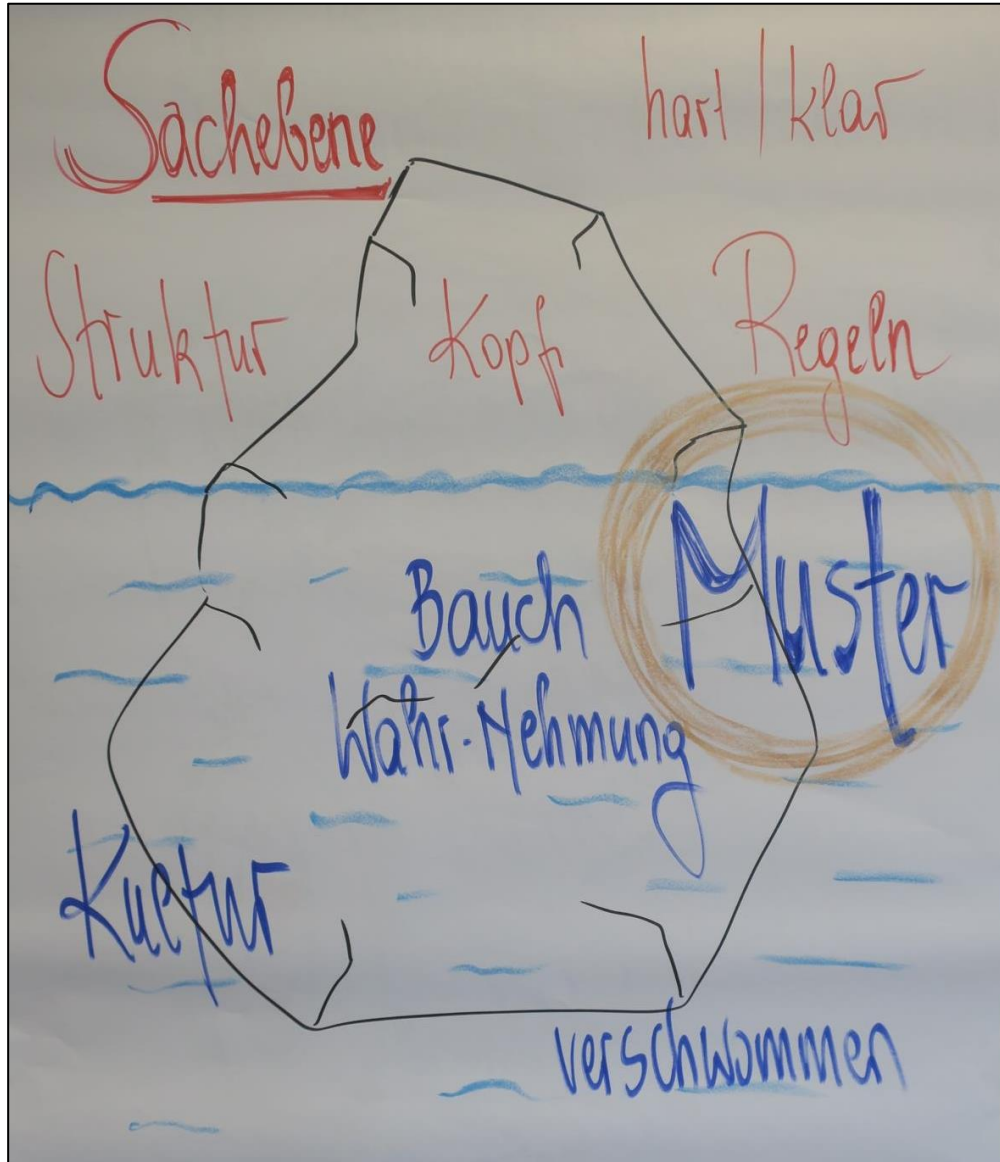 Sachebene
hart / klar
Struktur
Kopf
Regeln
Muster
Bauch
Wahr-Nehmung
Kultur
verschwommen